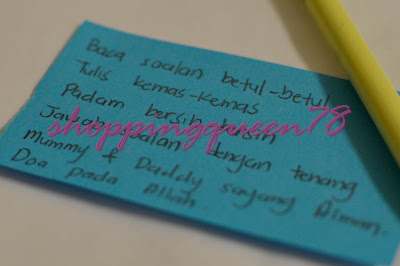 Baca soalan betul-betul
Tulis kemas-kemas
Padam bersih-bersih
Jawab soalan dengan tenang
mummy & Daddy sayang Aiman.
Doa pada Allah
shoppingqueen78